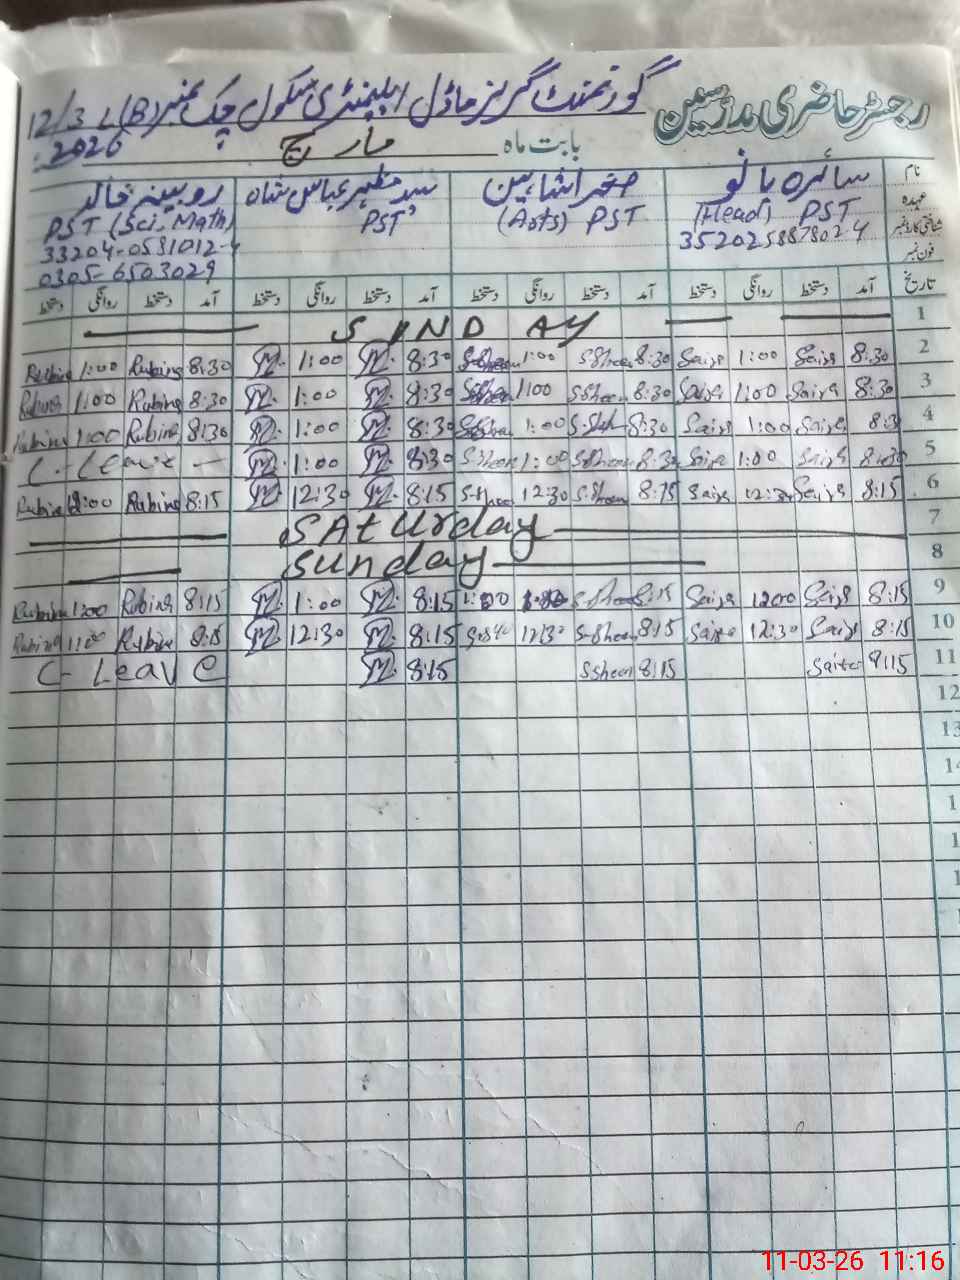 رجسٹر حاضری مدرسین گورنمنٹ گرلز ماڈل ایلیمنٹری سکول چک نمبر 12/3 L(B)
بابت ماہ مارچ 2026
نام سائرہ بانو صغراشاہین سید مظہر عباس شاہ روبینہ خالد
عہدہ (Head) PST (Arts) PST PST PST (Sci, Math)
شناختی کارڈ نمبر 352025887802-4 33204-0581012-4
فون نمبر 0305-6503029
تاریخ آمد دستخط روانگی دستخط آمد دستخط روانگی دستخط آمد دستخط روانگی دستخط آمد دستخط روانگی دستخط
1 SUNDAY
2 8:30 Saira 1:00 Saira 8:30 S.Sheen 1:00 S.Sheen 8:30 1:00 8:30 Rubina 1:00 Rubina
3 8:30 Saira 1:00 Saira 8:30 S.Sheen 1:00 S.Sheen 8:30 1:00 8:30 Rubina 1:00 Rubina
4 8:30 Saira 1:00 Saira 8:30 1:00 8:30 1:00 8:30 Rubina 1:00 Rubina
5 8:30 Saira 1:00 Saira 8:30 S.Sheen 1:00 S.Sheen 8:30 1:00 C-Leave
6 8:15 Saira 12:30 Saira 8:15 S.Sheen 12:30 8:15 12:30 8:15 Rubina Rubina
7 SAtUrday
8 sunday
9 8:15 Saira Saira 8:15 1:00 8:15 1:00 8:15 Rubina Rubina
10 8:15 Saira 12:30 Saira 8:15 S-Sheen 12:30 8:15 12:30 8:15 Rubina Rubina
11 8:15 Saira 8:15 S.Sheen 8:15 C-Leave
12
13
11-03-26 11:16